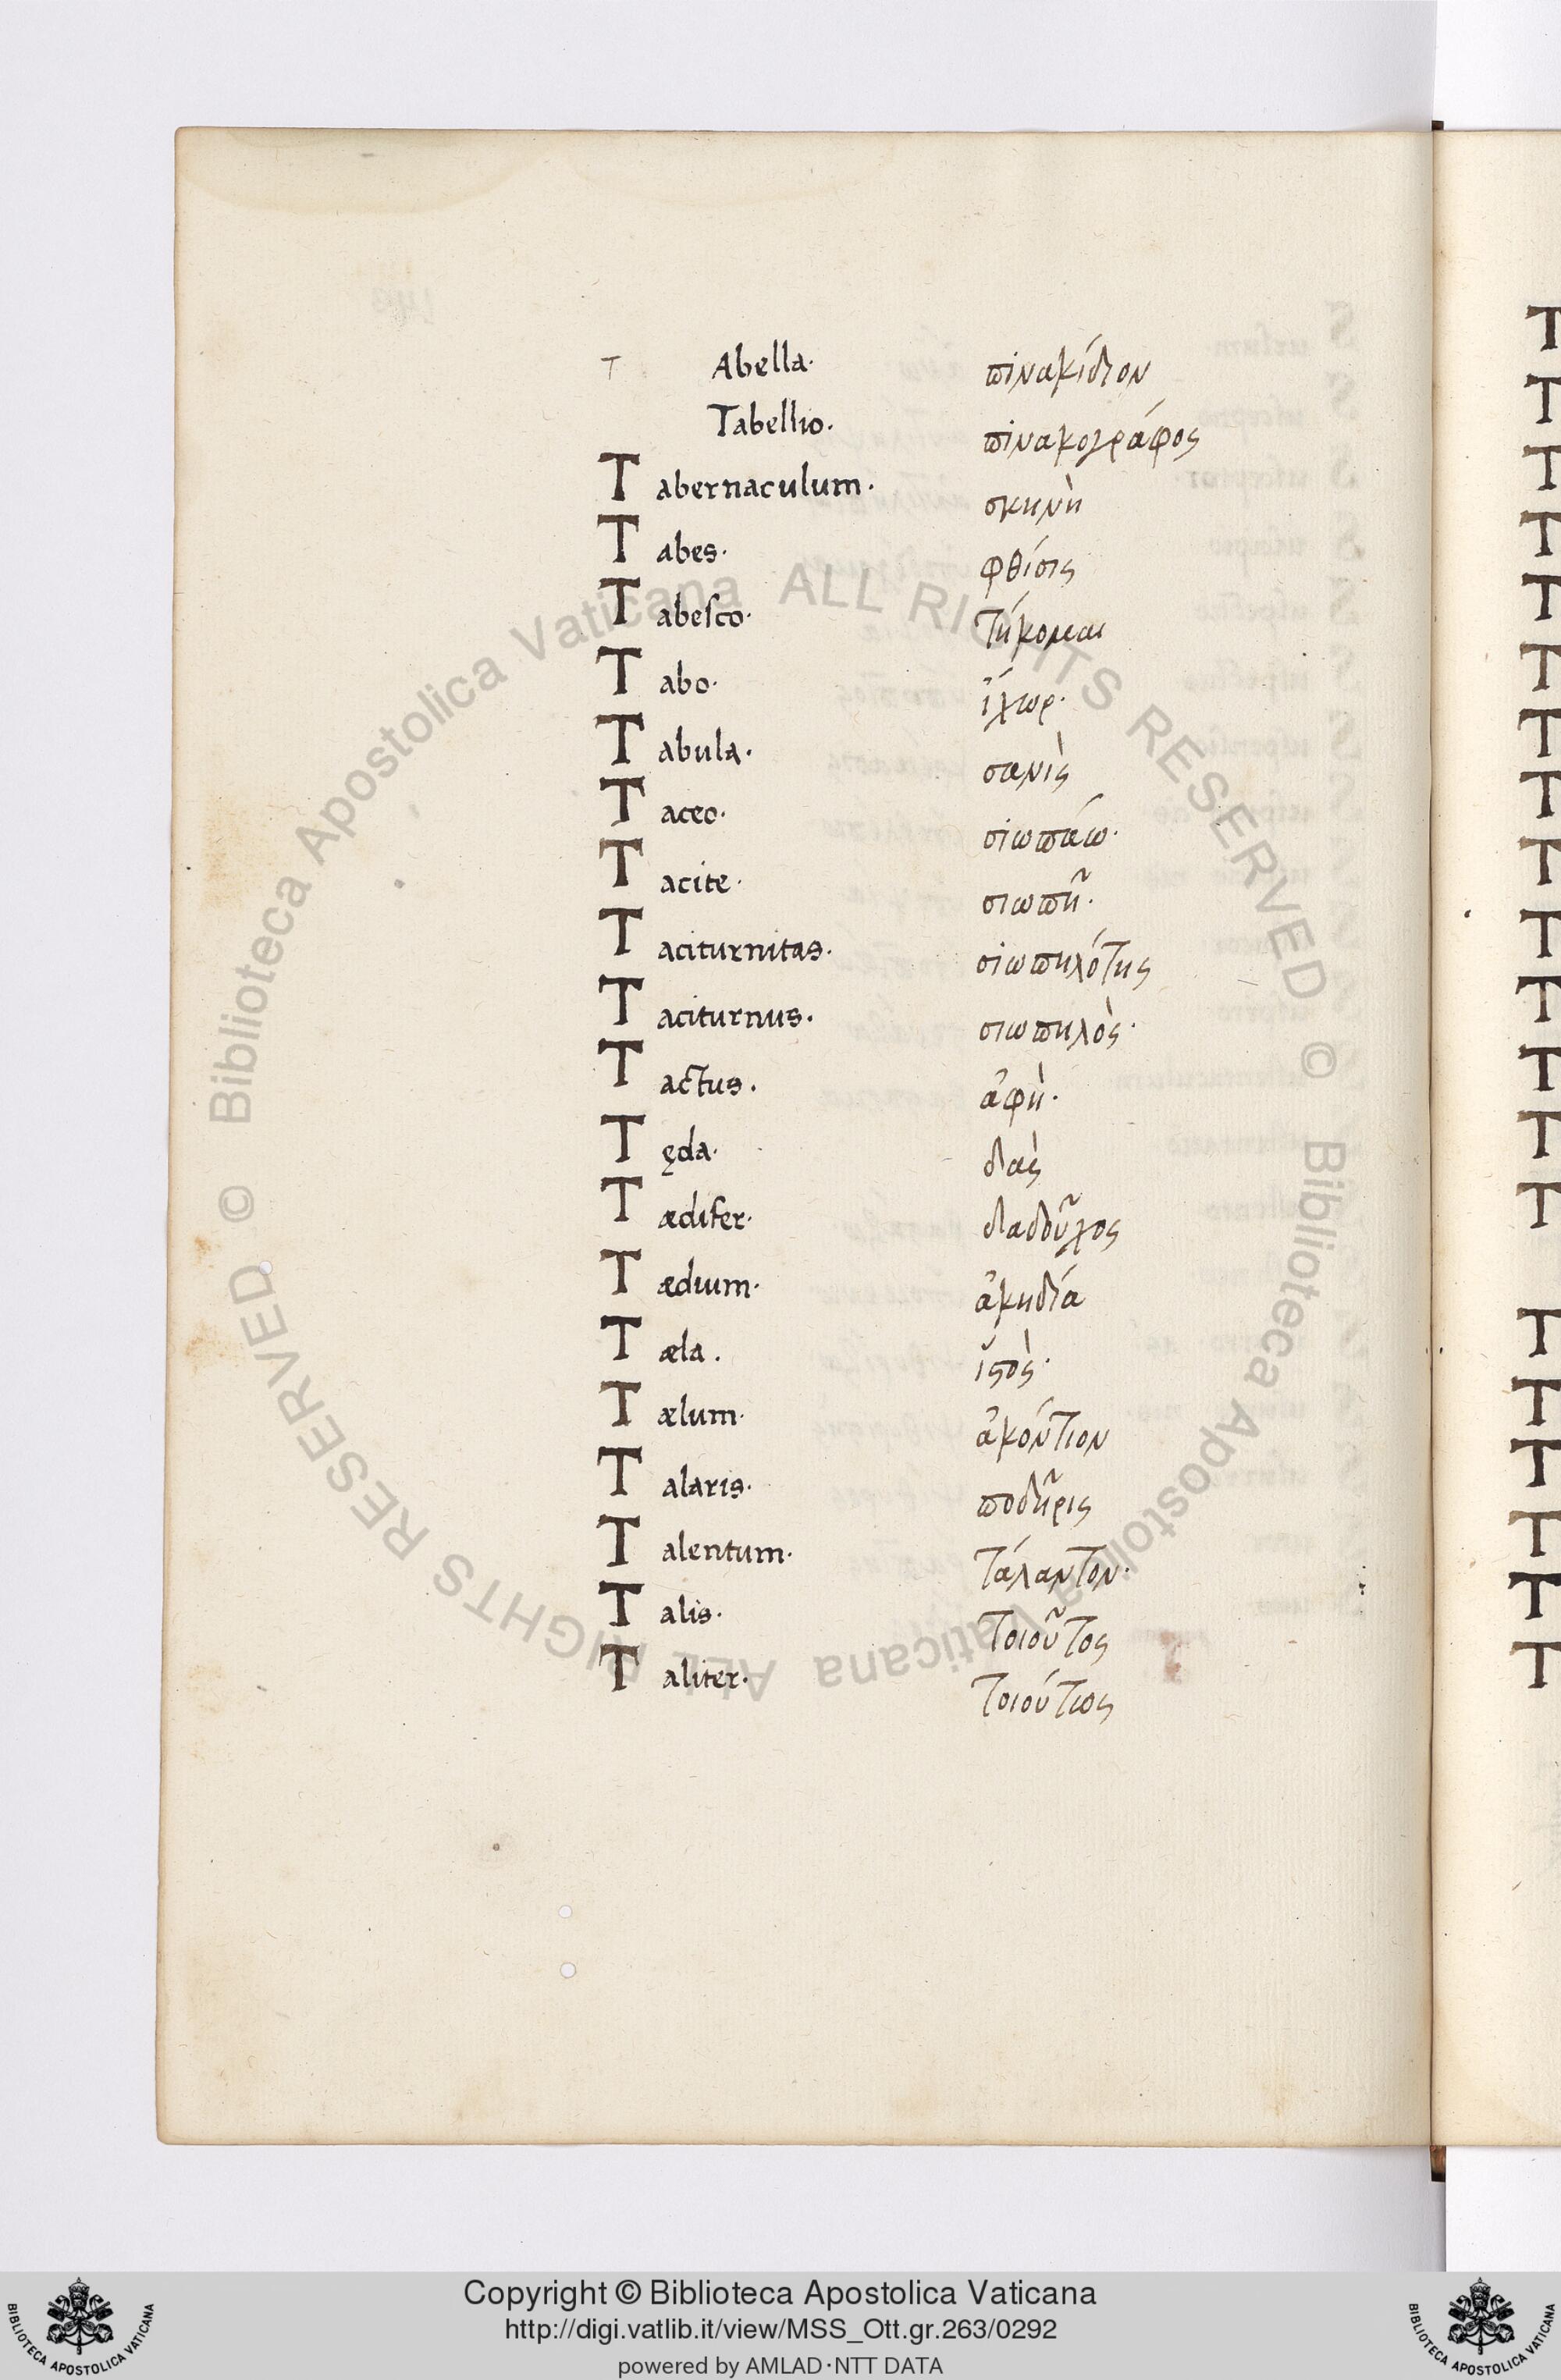 T Abella· πινακίδιον
Tabellio· πινακογράφος
Tabernaculum· σκηνὴ
Tabes· φθίσις
Tabeſco· τήκομαι
Tabo· ἰχώρ·
Tabula· σανὶς
Taceo· σιωπάω·
Tacite· σιωπῆ·
Taciturnitas· σιωπηλότης
Taciturnus· σιωπηλὸς·
Tactus· ἀφὴ·
Tęda· δαὶς
Tædifer· δαδοῦχος
Tædium· ἀκηδία
Tæla· ἱστὸς·
Tælum· ἀκόντιον
Talaris· ποδῆρις
Talentum· τάλαντον·
Talis· τοιοῦτος
Taliter· τοιούτως
Copyright © Biblioteca Apostolica Vaticana
http://digi.vatlib.it/view/MSS_Ott.gr.263/0292
powered by AMLAD·NTT DATA
BIBLIOTECA APOSTOLICA VATICANA
BIBLIOTECA APOSTOLICA VATICANA
Biblioteca Apostolica Vaticana ALL RIGHTS RESERVED ©
Biblioteca Apostolica Vaticana ALL RIGHTS RESERVED ©